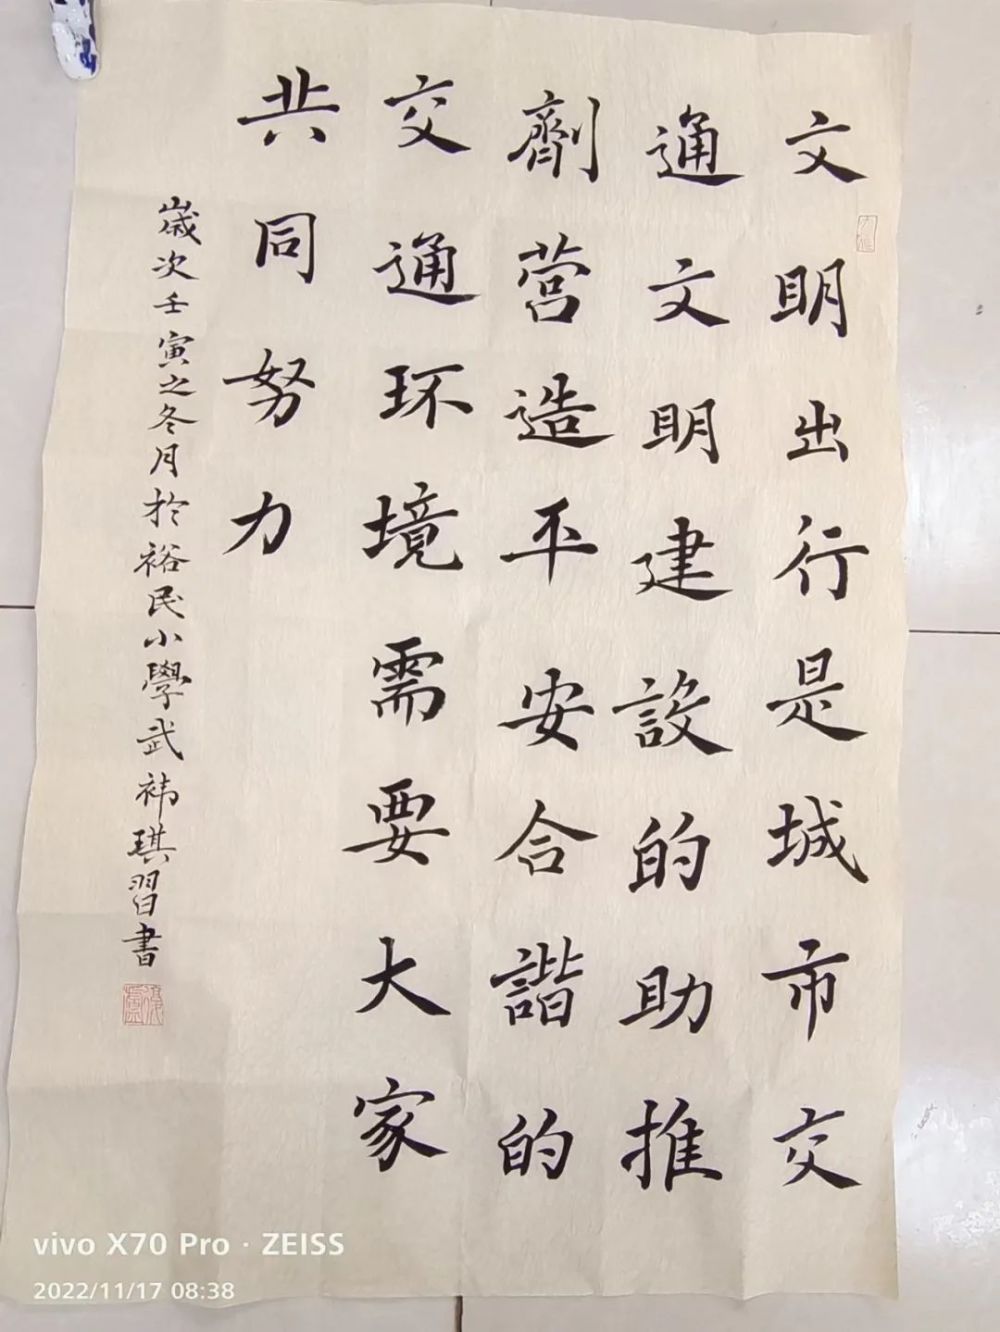 文明出行是城市交
通文明建設的助推
劑营造平安合諧的
交通环境需要大家
共同努力
歲次壬寅之冬月於裕民小學武祎琪習書
vivo X70 Pro · ZEISS
2022/11/17 08:38